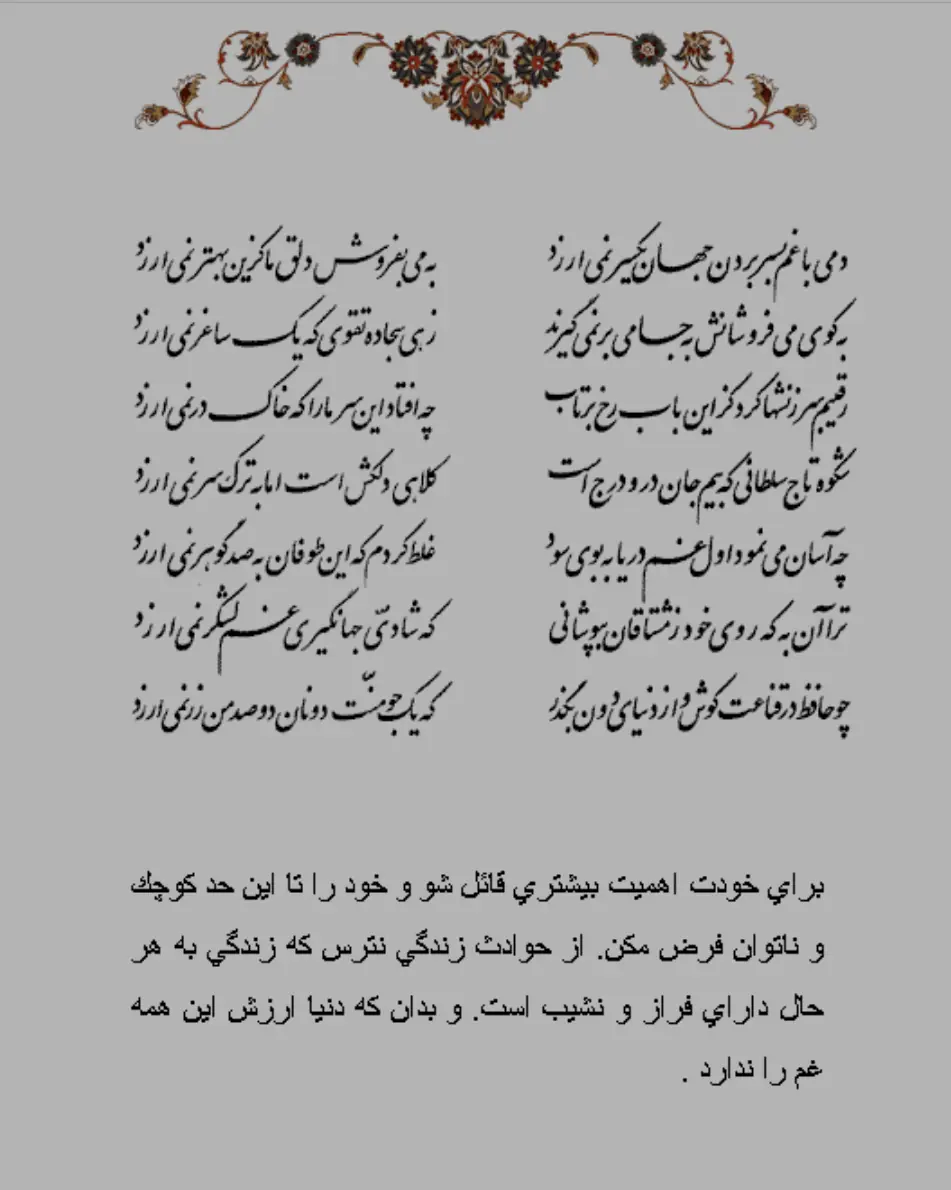 دمی با غم بسر بردن جهان یکسر نمی ارزد به می بفروش دلق ما کزین بهتر نمی ارزد
به کوی می فروشانش به جامی بر نمی گیرند زهی سجاده تقوی که یک ساغر نمی ارزد
رقیبم سرزنشها کرد کز این باب رخ برتاب چه افتاد این سر ما را که خاک در نمی ارزد
شکوه تاج سلطانی که بیم جان در و درج است کلاهی دلکش است اما به ترک سر نمی ارزد
چه آسان می نمود اول غم دریا به بوی سود غلط کردم که این طوفان به صد گوهر نمی ارزد
ترا آن به که روی خود ز مشتاقان بپوشانی که شادیّ جهانگیری غم لشکر نمی ارزد
چو حافظ در قناعت کوش و از دنیای دون بگذر که یک جو منّت دونان دو صد من زر نمی ارزد
براي خودت اهميت بيشتري قائل شو و خود را تا اين حد كوچك
و ناتوان فرض مكن. از حوادث زندگي نترس كه زندگي به هر
حال داراي فراز و نشيب است. و بدان كه دنيا ارزش اين همه
غم را ندارد .